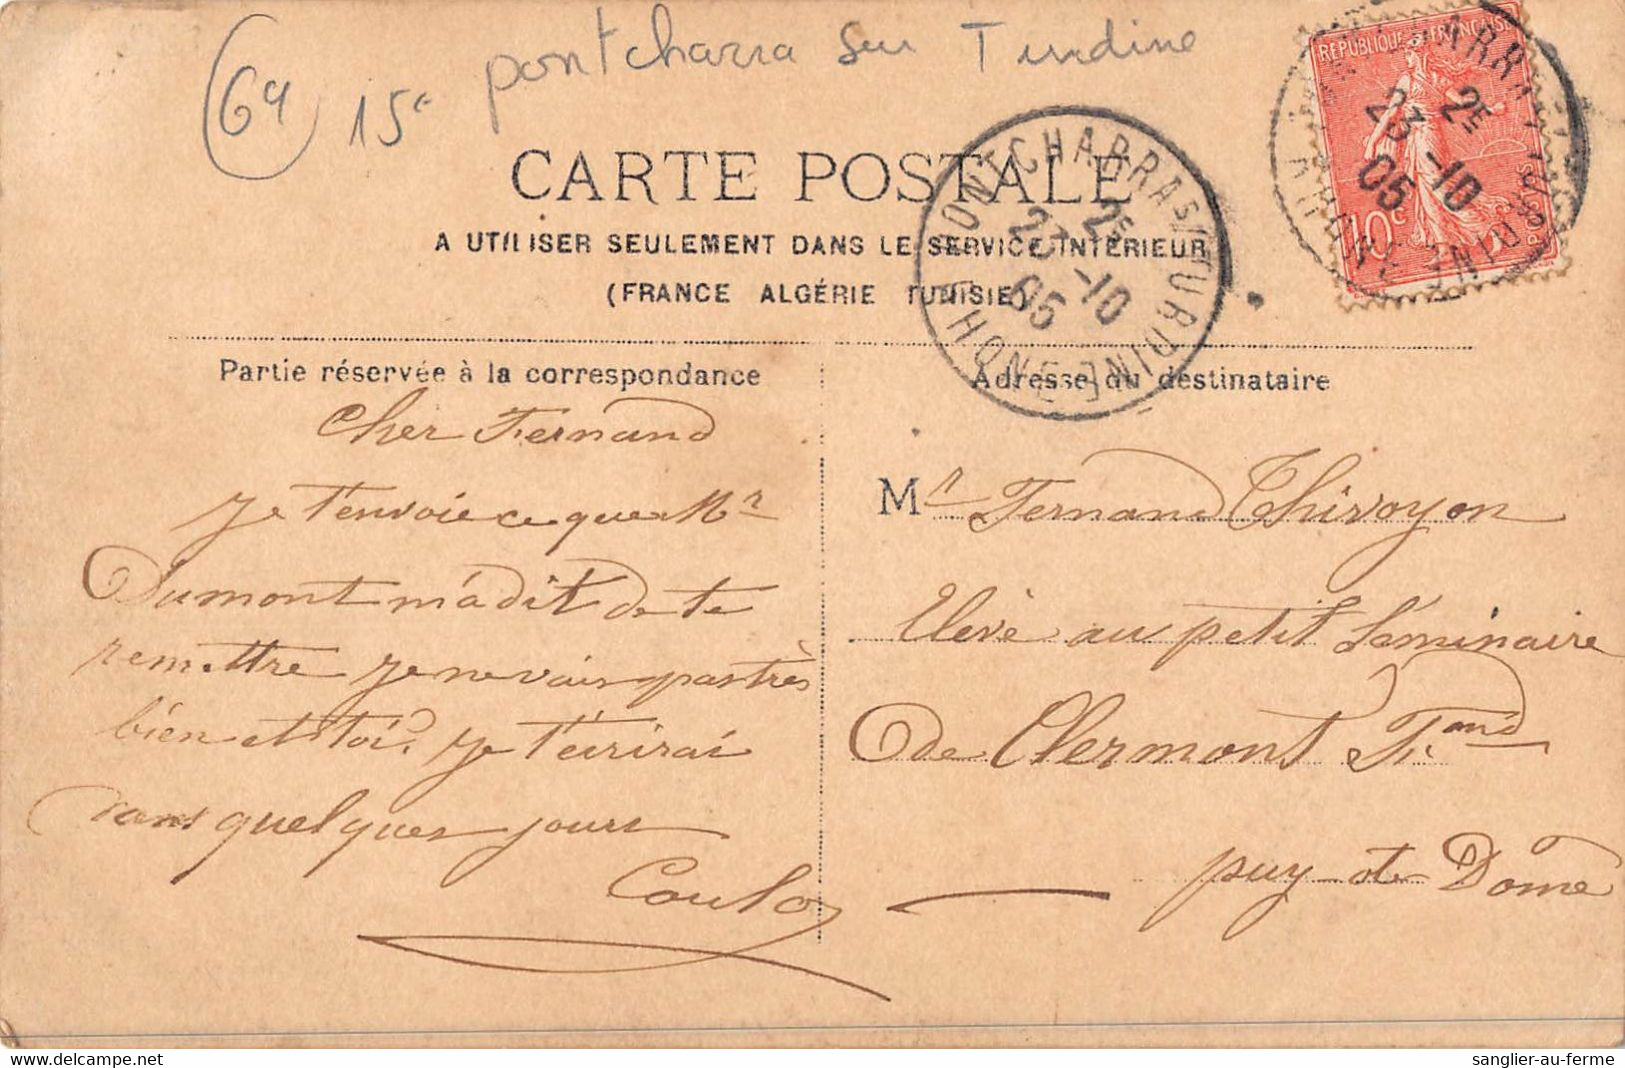 69
15€
pontcharra sur Turdine
CARTE POSTALE
A UTILISER SEULEMENT DANS LE SERVICE INTÉRIEUR
(FRANCE ALGÉRIE TUNISIE)
RÉPUBLIQUE FRANÇAISE
10c
POSTES
PONTCHARRA S/ TURDINE
2E
23 -10
05
RHONE
PONTCHARRA S/ TURDINE
2E
23 -10
05
RHONE
Partie réservée à la correspondance
Cher Fernand
Je t'envoie ce que Mr
Dumont m'a dit de te
remettre je ne vais pas très
bien et toi? Je t'écrirai
dans quelques jours
Adresse du destinataire
Mr Fernand Thivoyon
Elève au petit Séminaire
de Clermont Fand
puy-de Dome
delcampe.net
sanglier-au-ferme